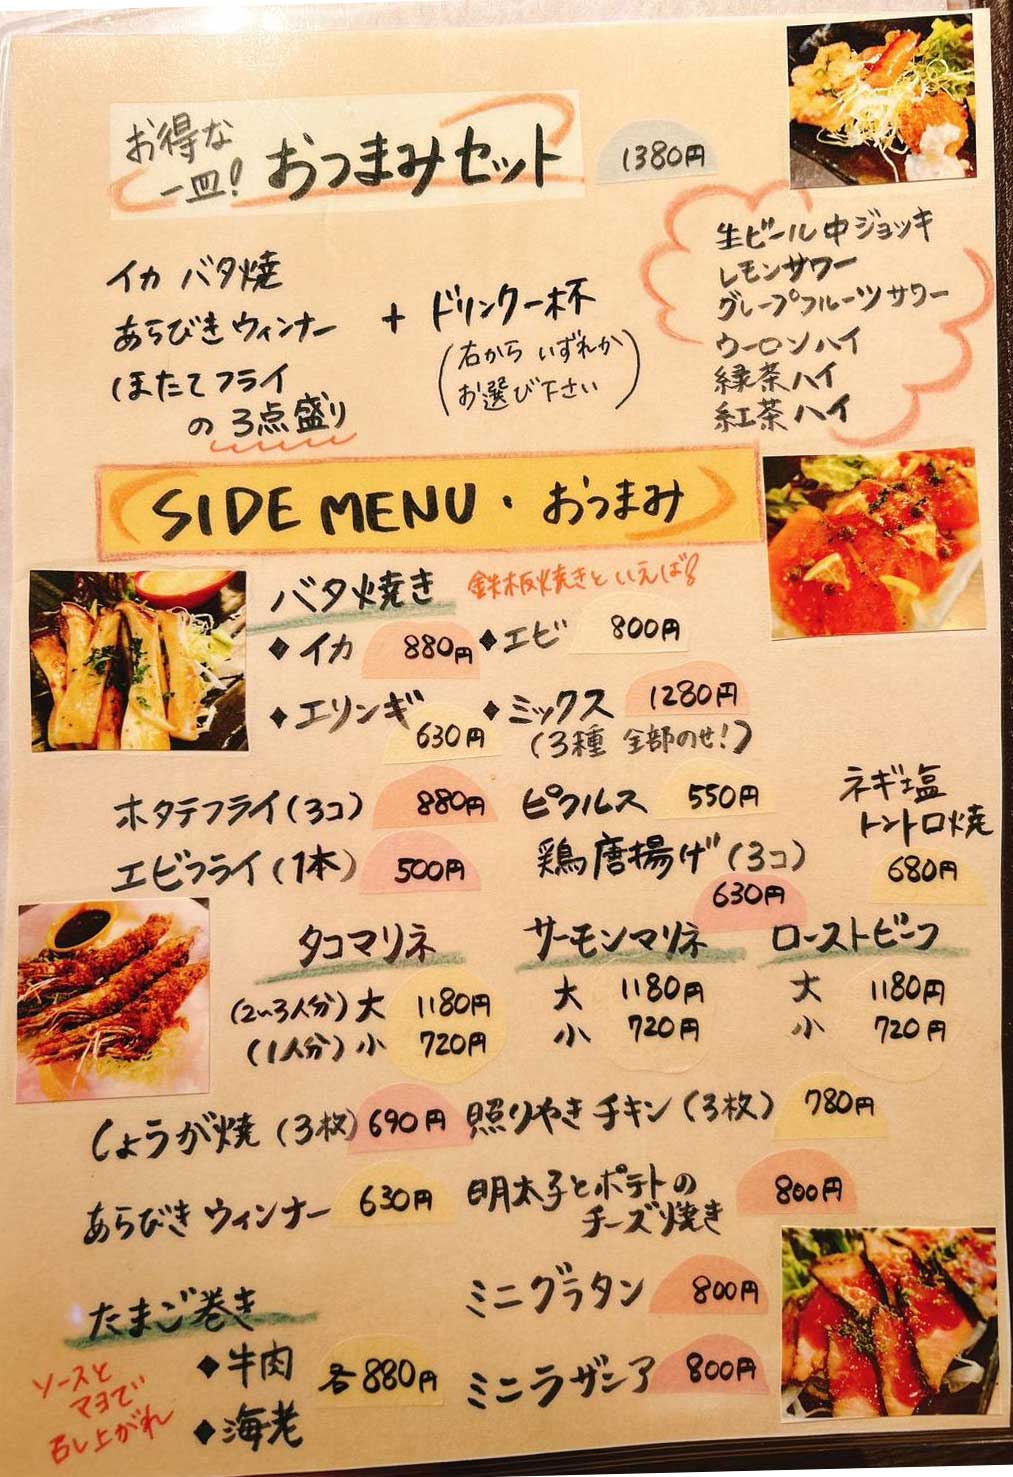 お得な
一皿！ おつまみセット 1380円
イカ バタ焼
あらびき ウィンナー
ほたてフライ
の 3点盛り
+ ドリンク一杯
(右から いずれか
お選び下さい)
生ビール中ジョッキ
レモンサワー
グレープフルーツサワー
ウーロンハイ
緑茶ハイ
紅茶ハイ
SIDE MENU・おつまみ
バタ焼き 鉄板焼きといえば！
◆イカ 880円 ◆エビ 800円
◆エリンギ 630円 ◆ミックス 1280円
(3種 全部のせ！)
ホタテフライ(3コ) 880円 ピクルス 550円
ネギ塩
トントロ焼
680円
エビフライ(1本) 500円 鶏唐揚げ(3コ)
630円
タコマリネ
(2〜3人分)大 1180円
(1人分)小 720円
サーモンマリネ
大 1180円
小 720円
ローストビーフ
大 1180円
小 720円
しょうが焼(3枚) 690円 照りやきチキン(3枚) 780円
あらびき ウィンナー 630円 明太子とポテトの
チーズ焼き 800円
たまご巻き
◆牛肉 各880円
◆海老
ソースと
マヨで
召し上がれ
ミニグラタン 800円
ミニラザニア 800円